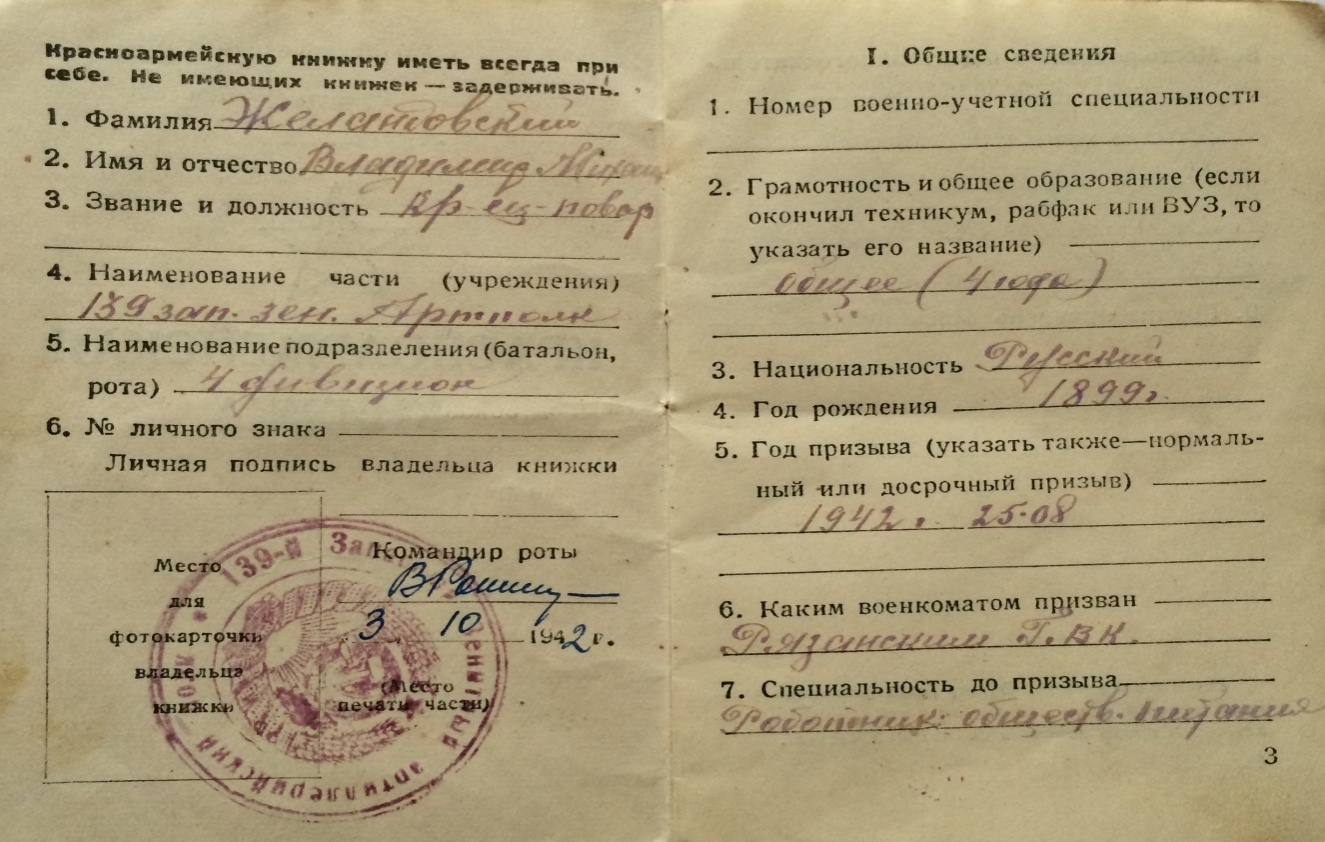 Красноармейскую книжку иметь всегда при
себе. Не имеющих книжек — задерживать.
1. Фамилия Желатовский
2. Имя и отчество Владимир Михаи
3. Звание и должность кр-ец-повар
4. Наименование части (учреждения)
139 зап. зен. Артполк
5. Наименование подразделения (батальон,
рота) 4 дивизион
6. № личного знака
Личная подпись владельца книжки
Место
для
фотокарточки
владельца
книжки
Командир роты
3 10 1942 г.
(Место
печати части)
139-й Зенитный артиллерийский полк
I. Общие сведения
1. Номер военно-учетной специальности
2. Грамотность и общее образование (если
окончил техникум, рабфак или ВУЗ, то
указать его название)
общее (4 года)
3. Национальность Русский
4. Год рождения 1899 г.
5. Год призыва (указать также—нормаль-
ный или досрочный призыв)
1942 г. 25.08
6. Каким военкоматом призван
Рязанским Г.В.К.
7. Специальность до призыва
Роботник обществ. питания
3